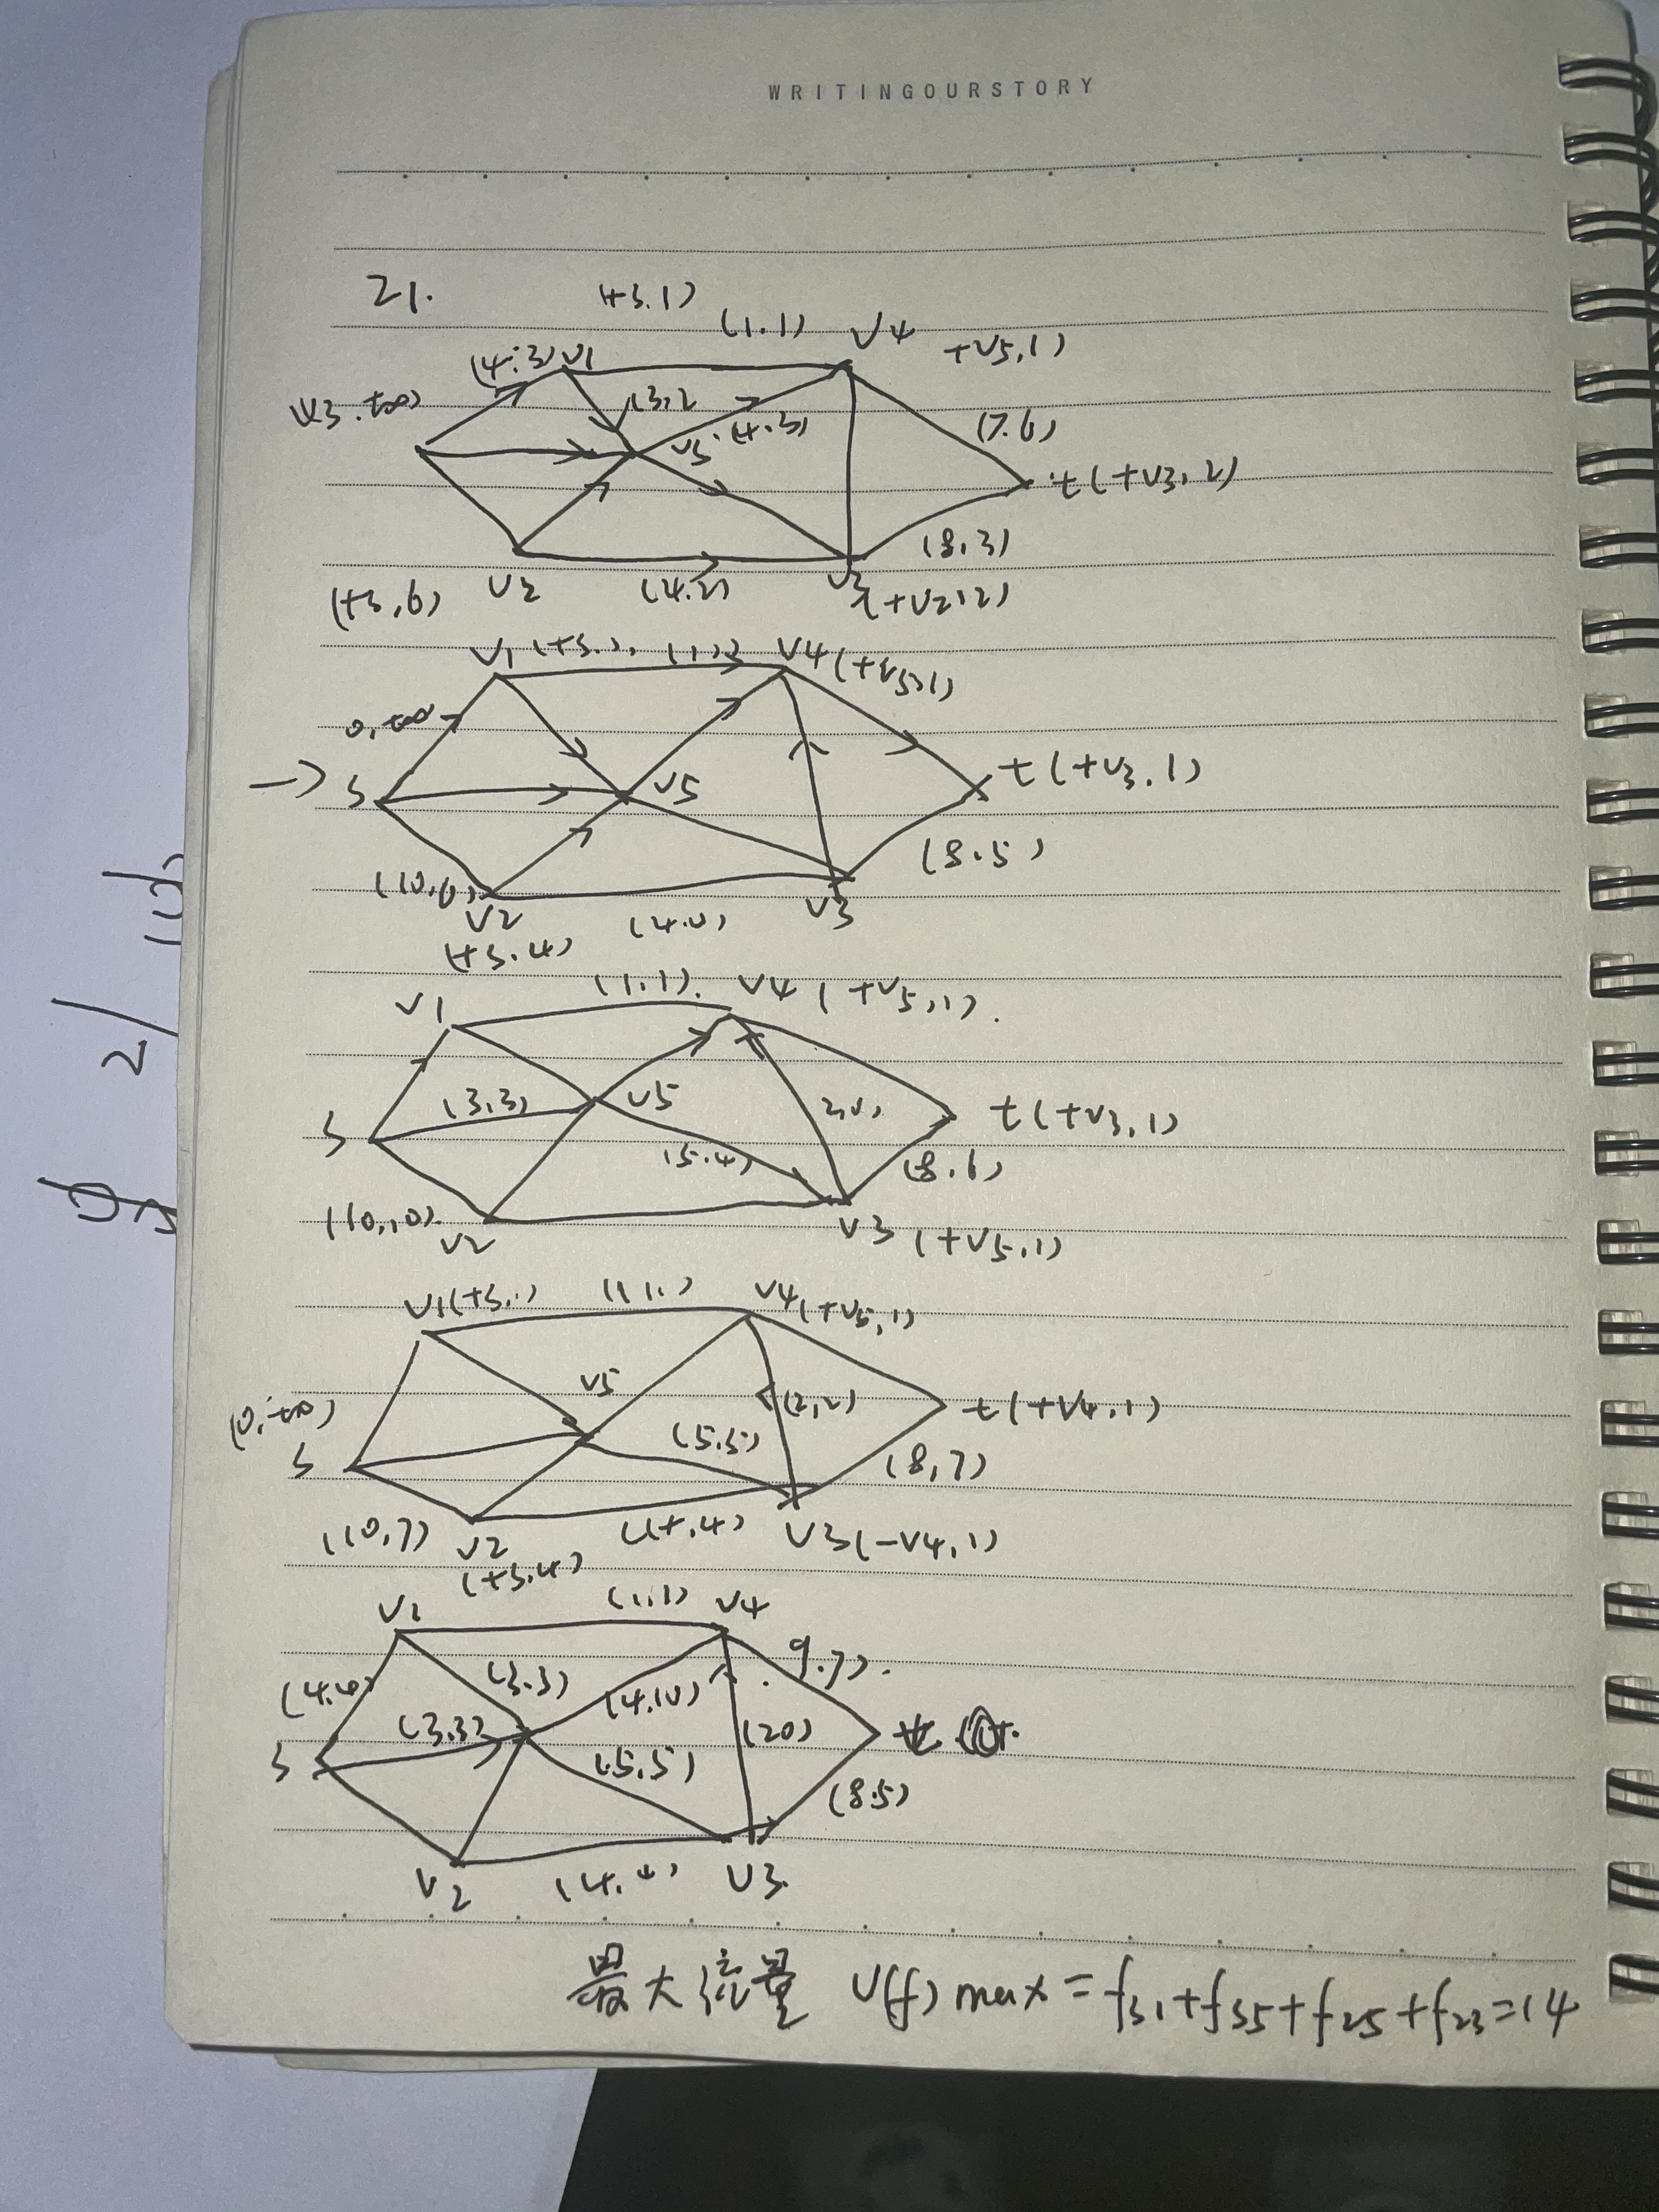 WRITINGOURSTORY
21.
(+s.1)
(1.1) V4 +V5,1)
(4.3) V1
(3,2
V5 (4.3)
(7.6)
t(+V3,2)
(8,3)
(+s,6) V2 (4.2) V3
(+V2,2)
V1 (+s.) V4(+V5,1)
0,+∞
→ s V5 t(+V3.1)
(8.5)
V2 V3
(+s.4)
V1 (1,1). V4 (+V5,1).
s (3,3) V5 t(+V3,1)
(5.4) (8.6)
(10, V2 V3 (+V5,1)
V1(+s,.) V4(+V5,1)
V5 (2,2) t(+V4,1)
(0,+∞)
s (5.5) (8,7)
(10,7) V2 V3(-V4,1)
(+s.4)
(1,1) V4
9.7).
(3.3)
s (3,3) (20)
(5,5) (8.5)
V2 V3.
最大流量 V(f) max = fs1+fs5+f25+f23=14